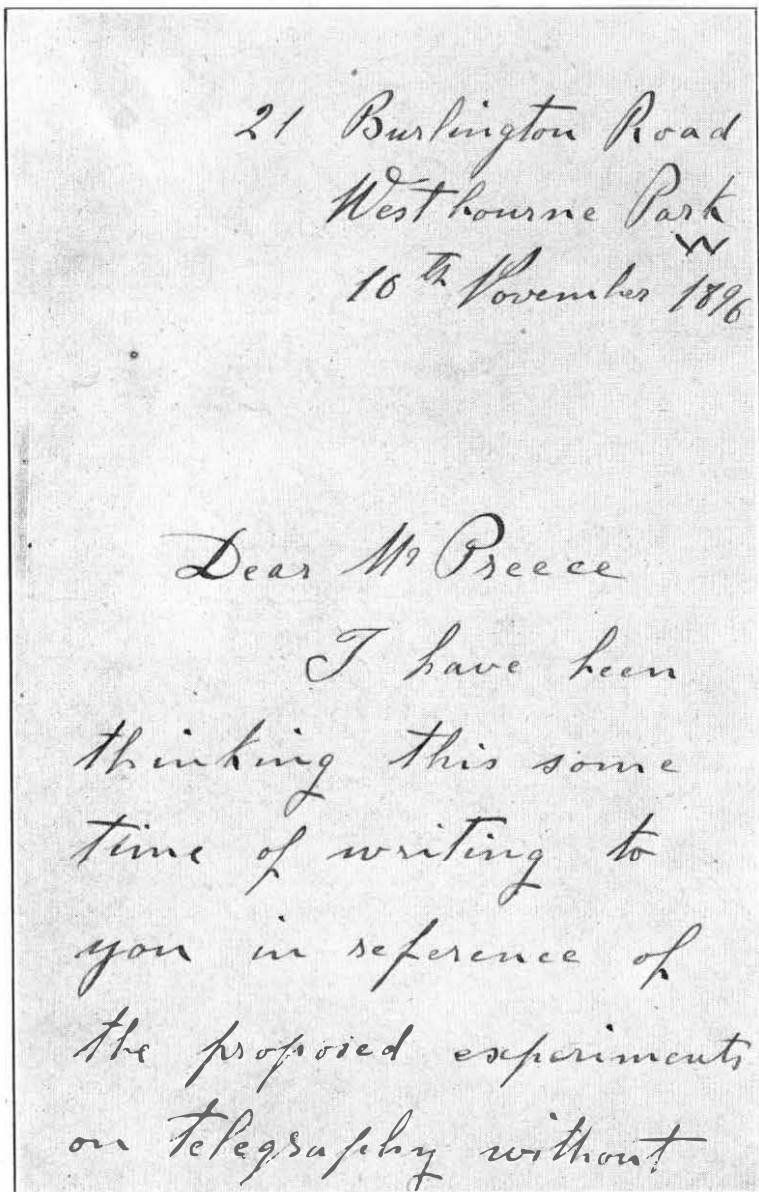 21 Burlington Road
Westbourne Park
W
10th November 1896
Dear Mr Preece
I have been
thinking this some
time of writing to
you in reference of
the proposed experiments
on telegraphy without